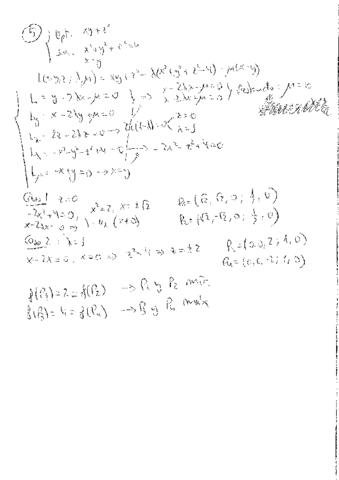 5) Opt. xy+z²
s.a. x²+y²+z²=4
x=y
L(x,y,z;λ,μ) = xy+z²-λ(x²+y²+z²-4)-μ(x-y)
Lx = y-2λx-μ=0 } ⇒ x-2λx-μ=0 } μ=0
Ly = x-2λy+μ=0 x-2λx+μ=0
Lz = 2z-2λz=0 → 2z(1-λ)=0 z=0
λ=1
Lλ = -x²-y²-z²+4=0 → -2x²-z²+4=0
Lμ = -x+y=0 → x=y
Caso 1 z=0
-2x²+4=0, x²=2, x=±√2 P₁=(√2, √2, 0; ½, 0)
x-2λx=0 ⇒ λ=½ (x≠0) P₂=(-√2, -√2, 0; ½, 0)
Caso 2: λ=1
x-2x=0, x=0 ⇒ z²=4 ⇒ z=±2 P₃=(0,0,2; 1,0)
P₄=(0,0,-2; 1,0)
f(P₁)=2=f(P₂) → P₁ y P₂ mín.
f(P₃)=4=f(P₄) → P₃ y P₄ máx